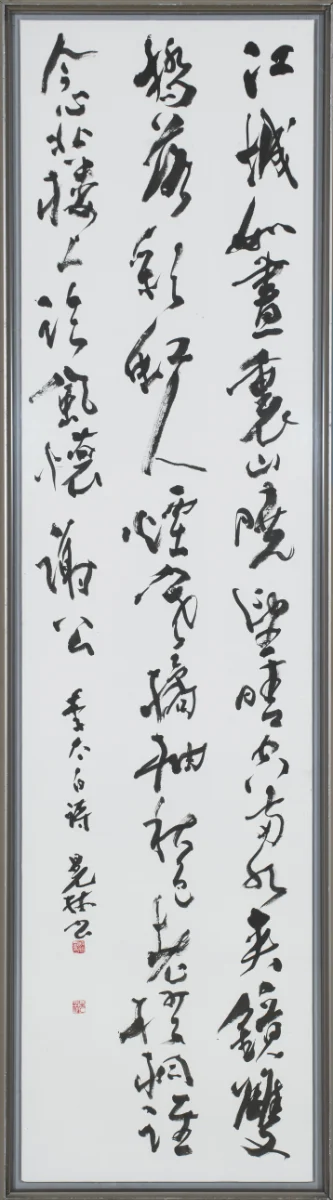 江城如畫裏山曉望晴空兩水夾鏡雙
橋落彩虹人煙寒橘柚秋色老梧桐誰
念北樓上臨風懷謝公
李太白詩